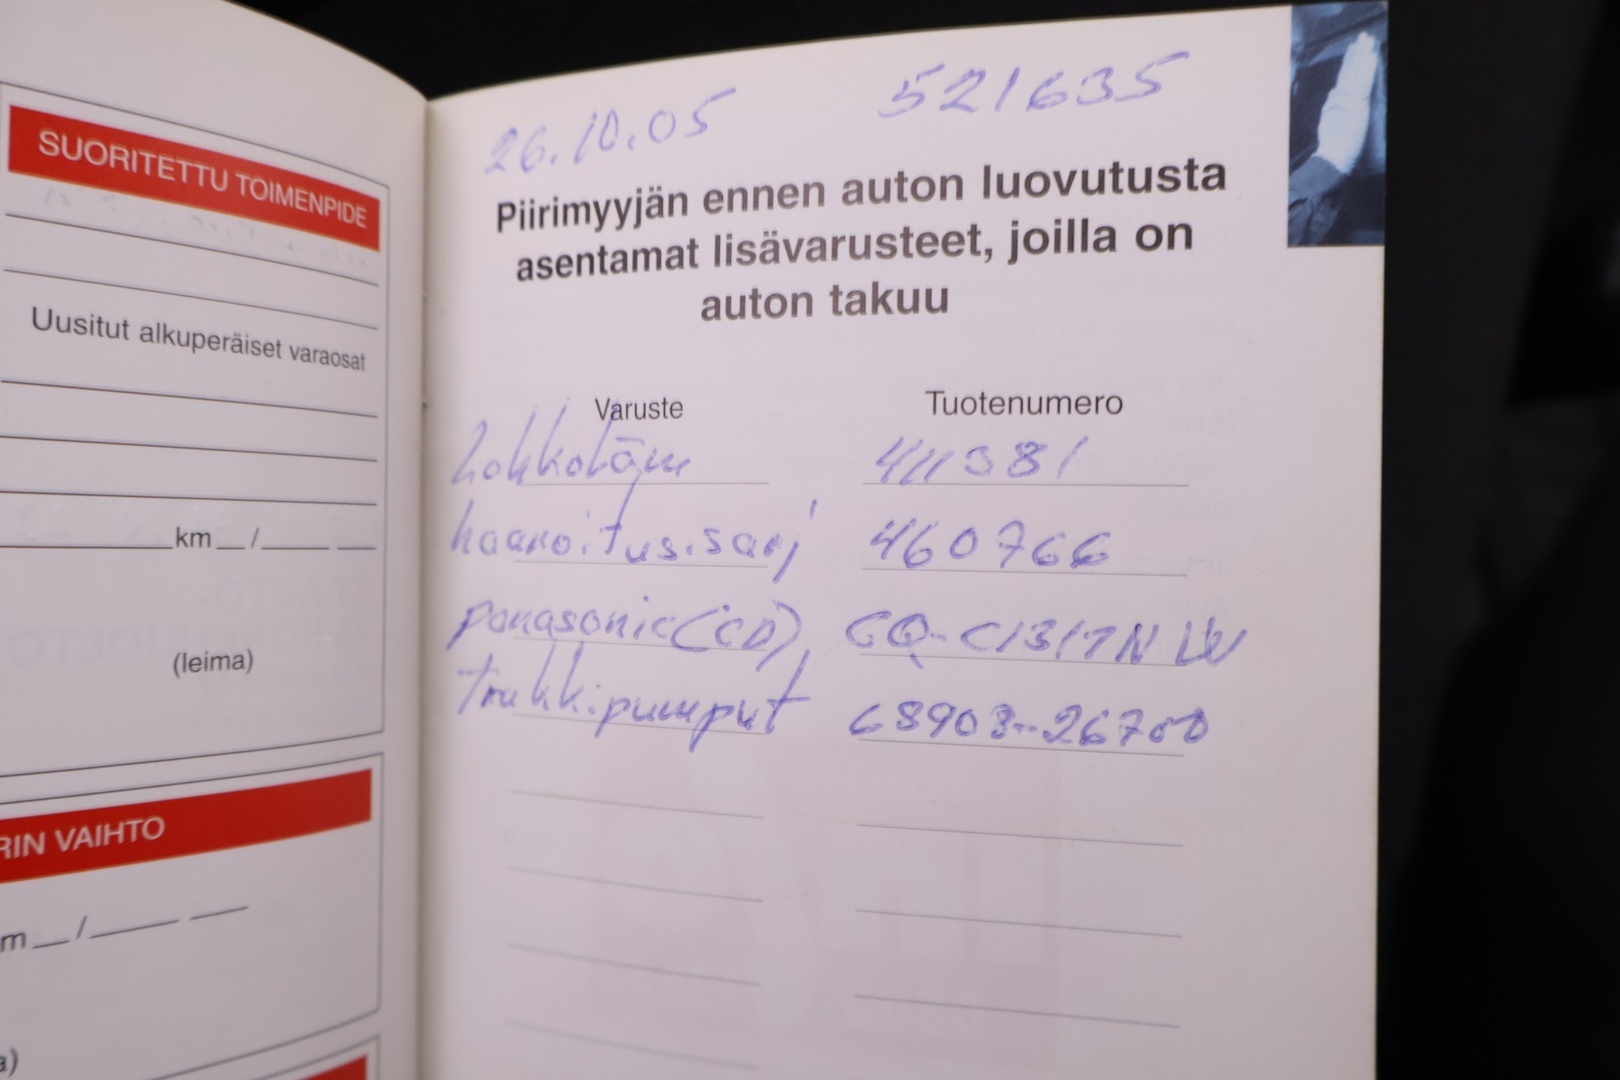 SUORITETTU TOIMENPIDE
Uusitut alkuperäiset varaosat
km __ /____ __
(leima)
RIN VAIHTO
m __ /____ __
a)
26.10.05 521635
Piirimyyjän ennen auton luovutusta
asentamat lisävarusteet, joilla on
auton takuu
Varuste Tuotenumero
lohkoläm 411381
haaroitus.sarj 460766
panasonic(CD) CQ-C1311N
trukkipumput 68908-26700